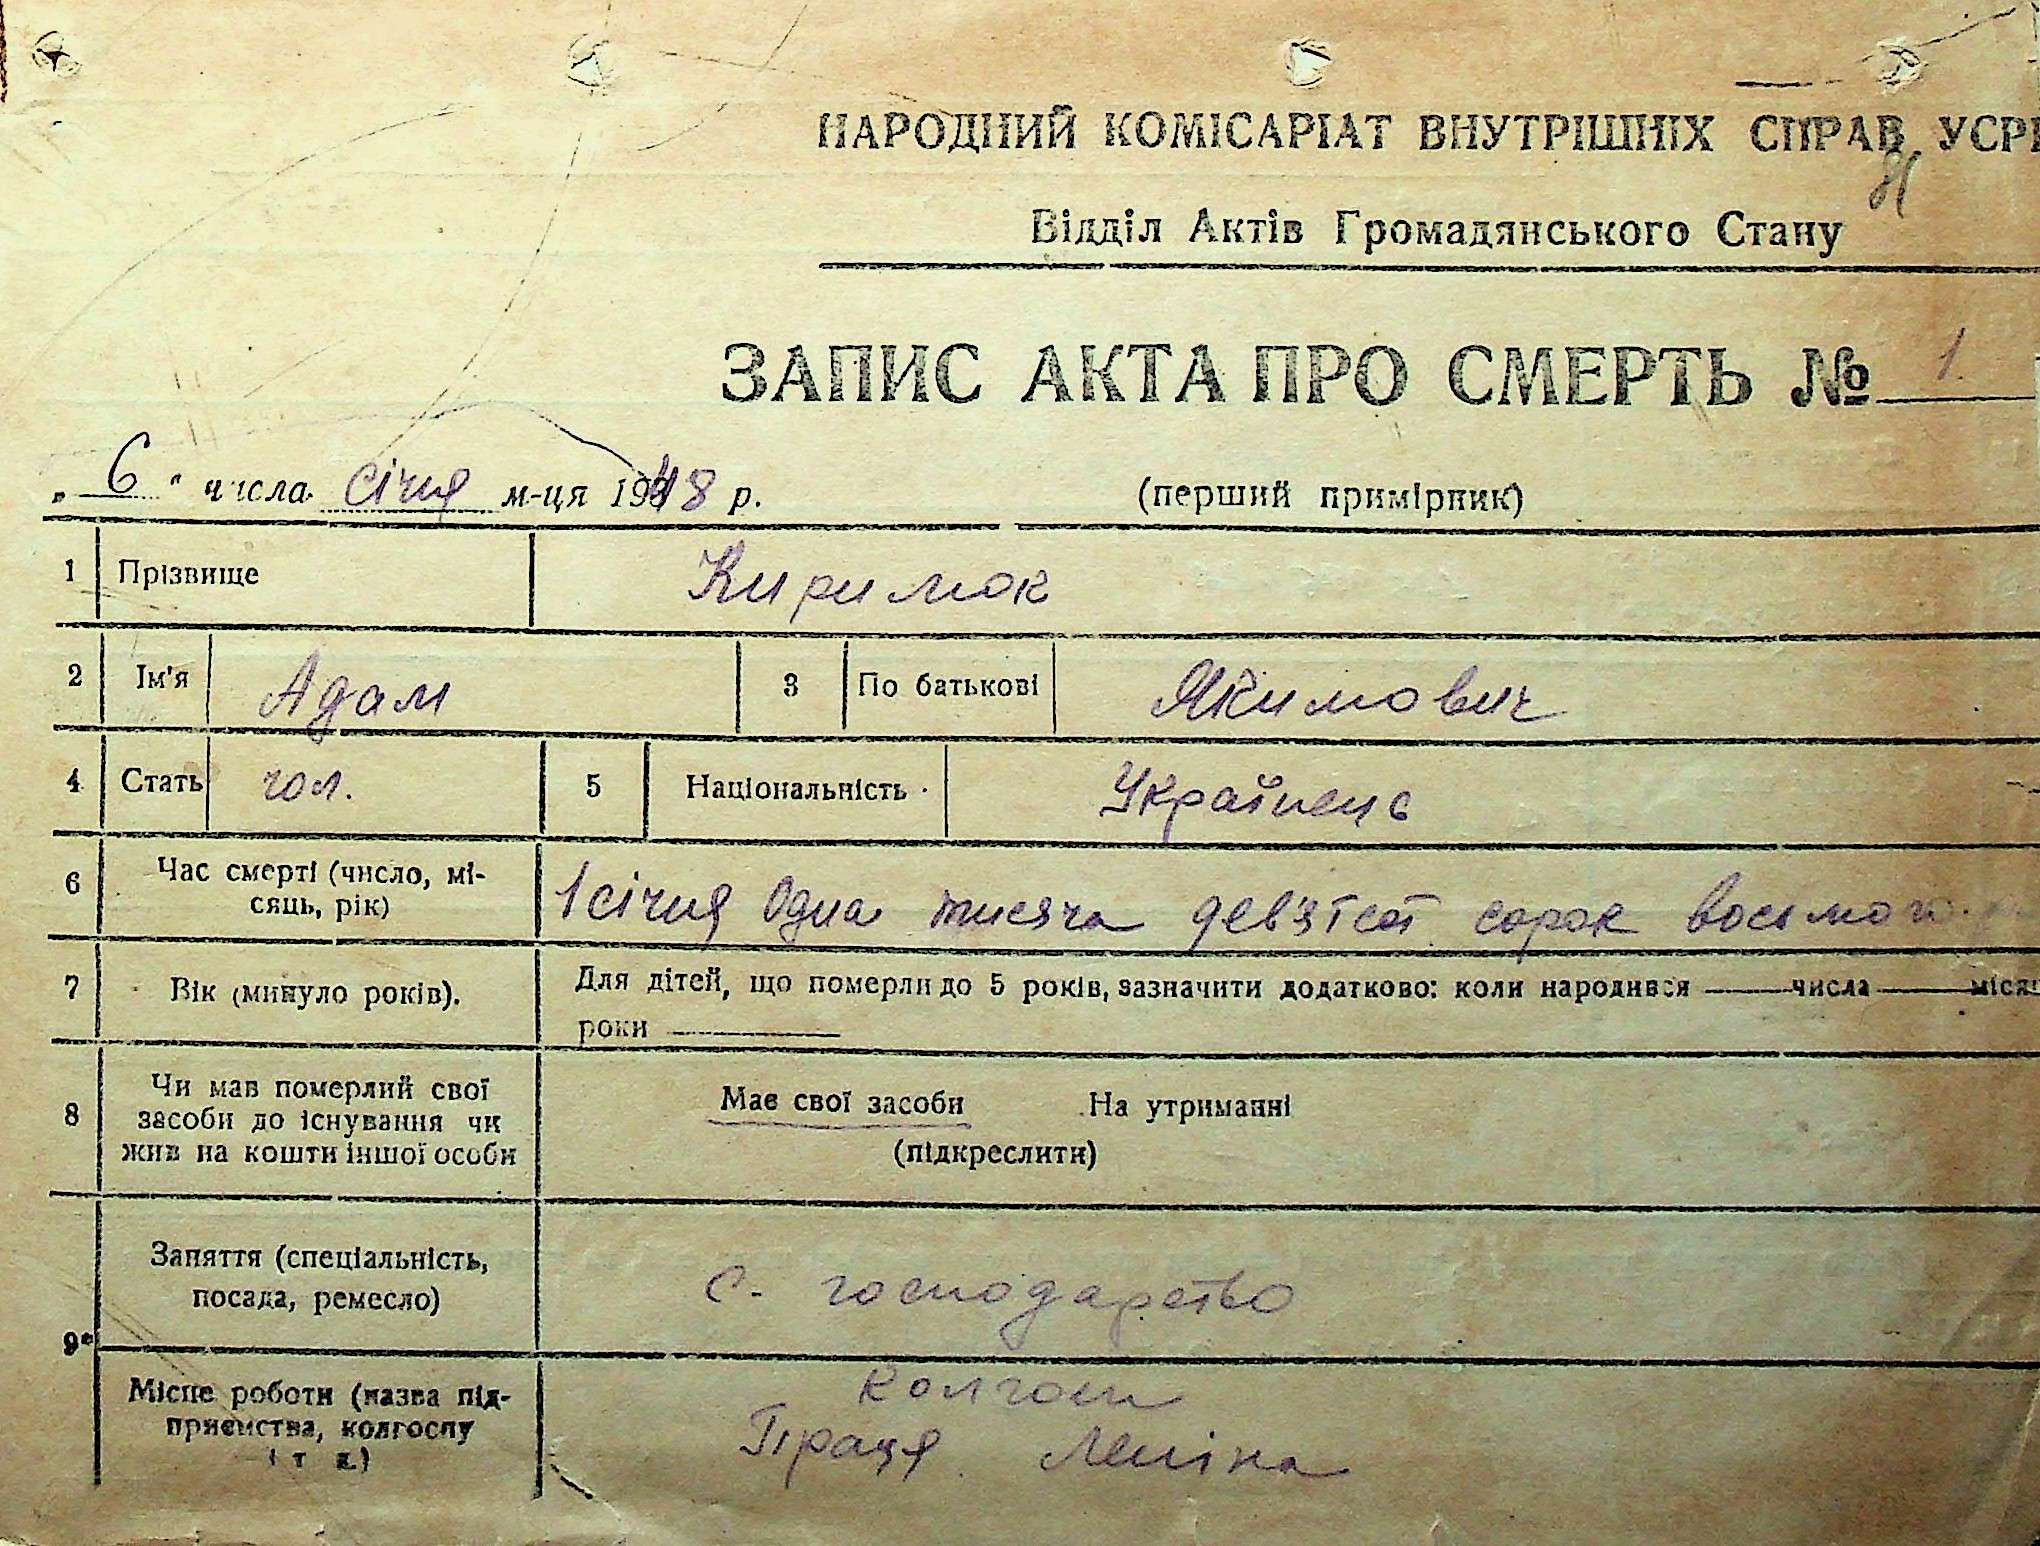 НАРОДНИЙ КОМІСАРІАТ ВНУТРІШНІХ СПРАВ УСРР
Відділ Актів Громадянського Стану
ЗАПИС АКТА ПРО СМЕРТЬ № 1
„ 6 “ числа січня м-ця 1948 р. (перший примірник)
1 Прізвище Киримок
2 Ім'я Адам 3 По батькові Якимович
4 Стать чол. 5 Національність Українець
6 Час смерті (число, мі-
сяць, рік) 1 січня Одна тисяча дев'ятсот сорок восьмого
7 Вік (минуло років). Для дітей, що померли до 5 років, зазначити додатково: коли народився —— числа —— місяц
роки ——
8 Чи мав померлий свої
засоби до існування чи
жив на кошти іншої особи
Має свої засоби На утриманні
(підкреслити)
9 Заняття (спеціальність,
посада, ремесло) С. господарство
Місце роботи (назва під-
приємства, колгоспу
і т д.)
Колгосп
Праця Леніна